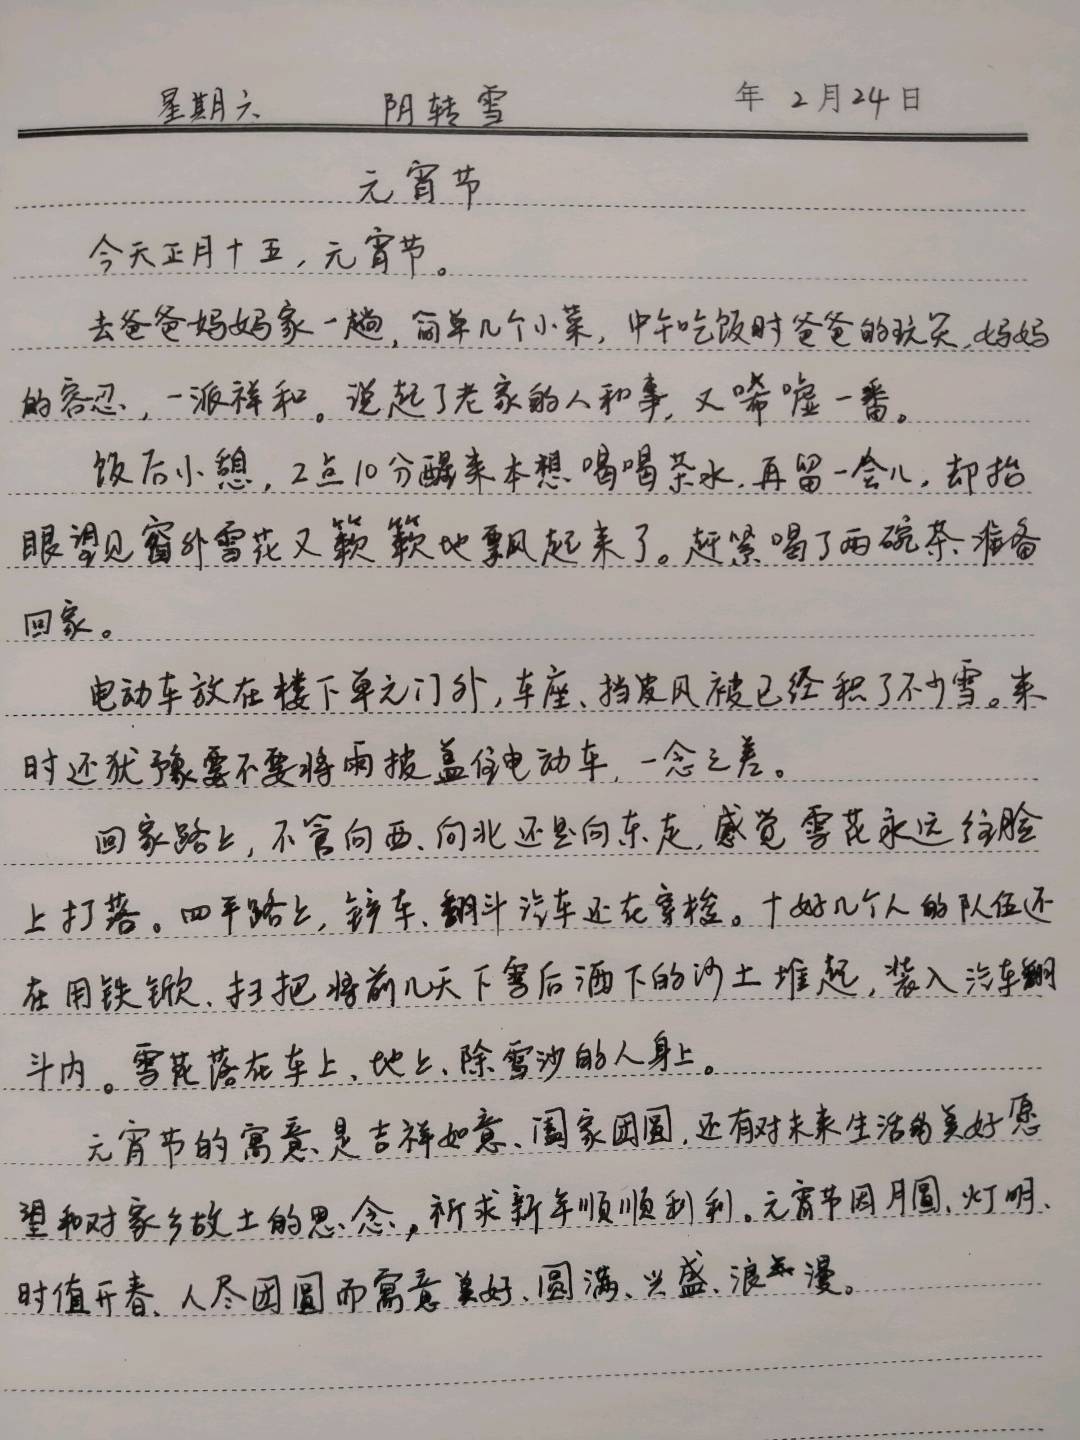 星期六 阴转雪 年 2月24日
元宵节
今天正月十五，元宵节。
去爸爸妈妈家一趟，简单几个小菜，中午吃饭时爸爸的玩笑，妈妈
的容忍，一派祥和。说起了老家的人和事，又唏嘘一番。
饭后小憩，2点10分醒来本想喝喝茶水，再留一会儿，却抬
眼望见窗外雪花又簌簌地飘起来了。赶紧喝了两碗茶准备
回家。
电动车放在楼下单元门外，车座、挡风被已经积了不少雪。来
时还犹豫要不要将雨披盖住电动车，一念之差。
回家路上，不管向西、向北还是向东走，感觉雪花永远往脸
上打落。四平路上，铲车、翻斗汽车还在穿梭。十好几个人的队伍还
在用铁锨、扫把将前几天下雪后洒下的沙土堆起，装入汽车翻
斗内。雪花落在车上、地上、除雪沙的人身上。
元宵节的寓意是吉祥如意、阖家团圆，还有对未来生活的美好愿
望和对家乡故土的思念，祈求新年顺顺利利。元宵节因月圆、灯明、
时值开春、人尽团圆而寓意美好、圆满、兴盛、浪漫。